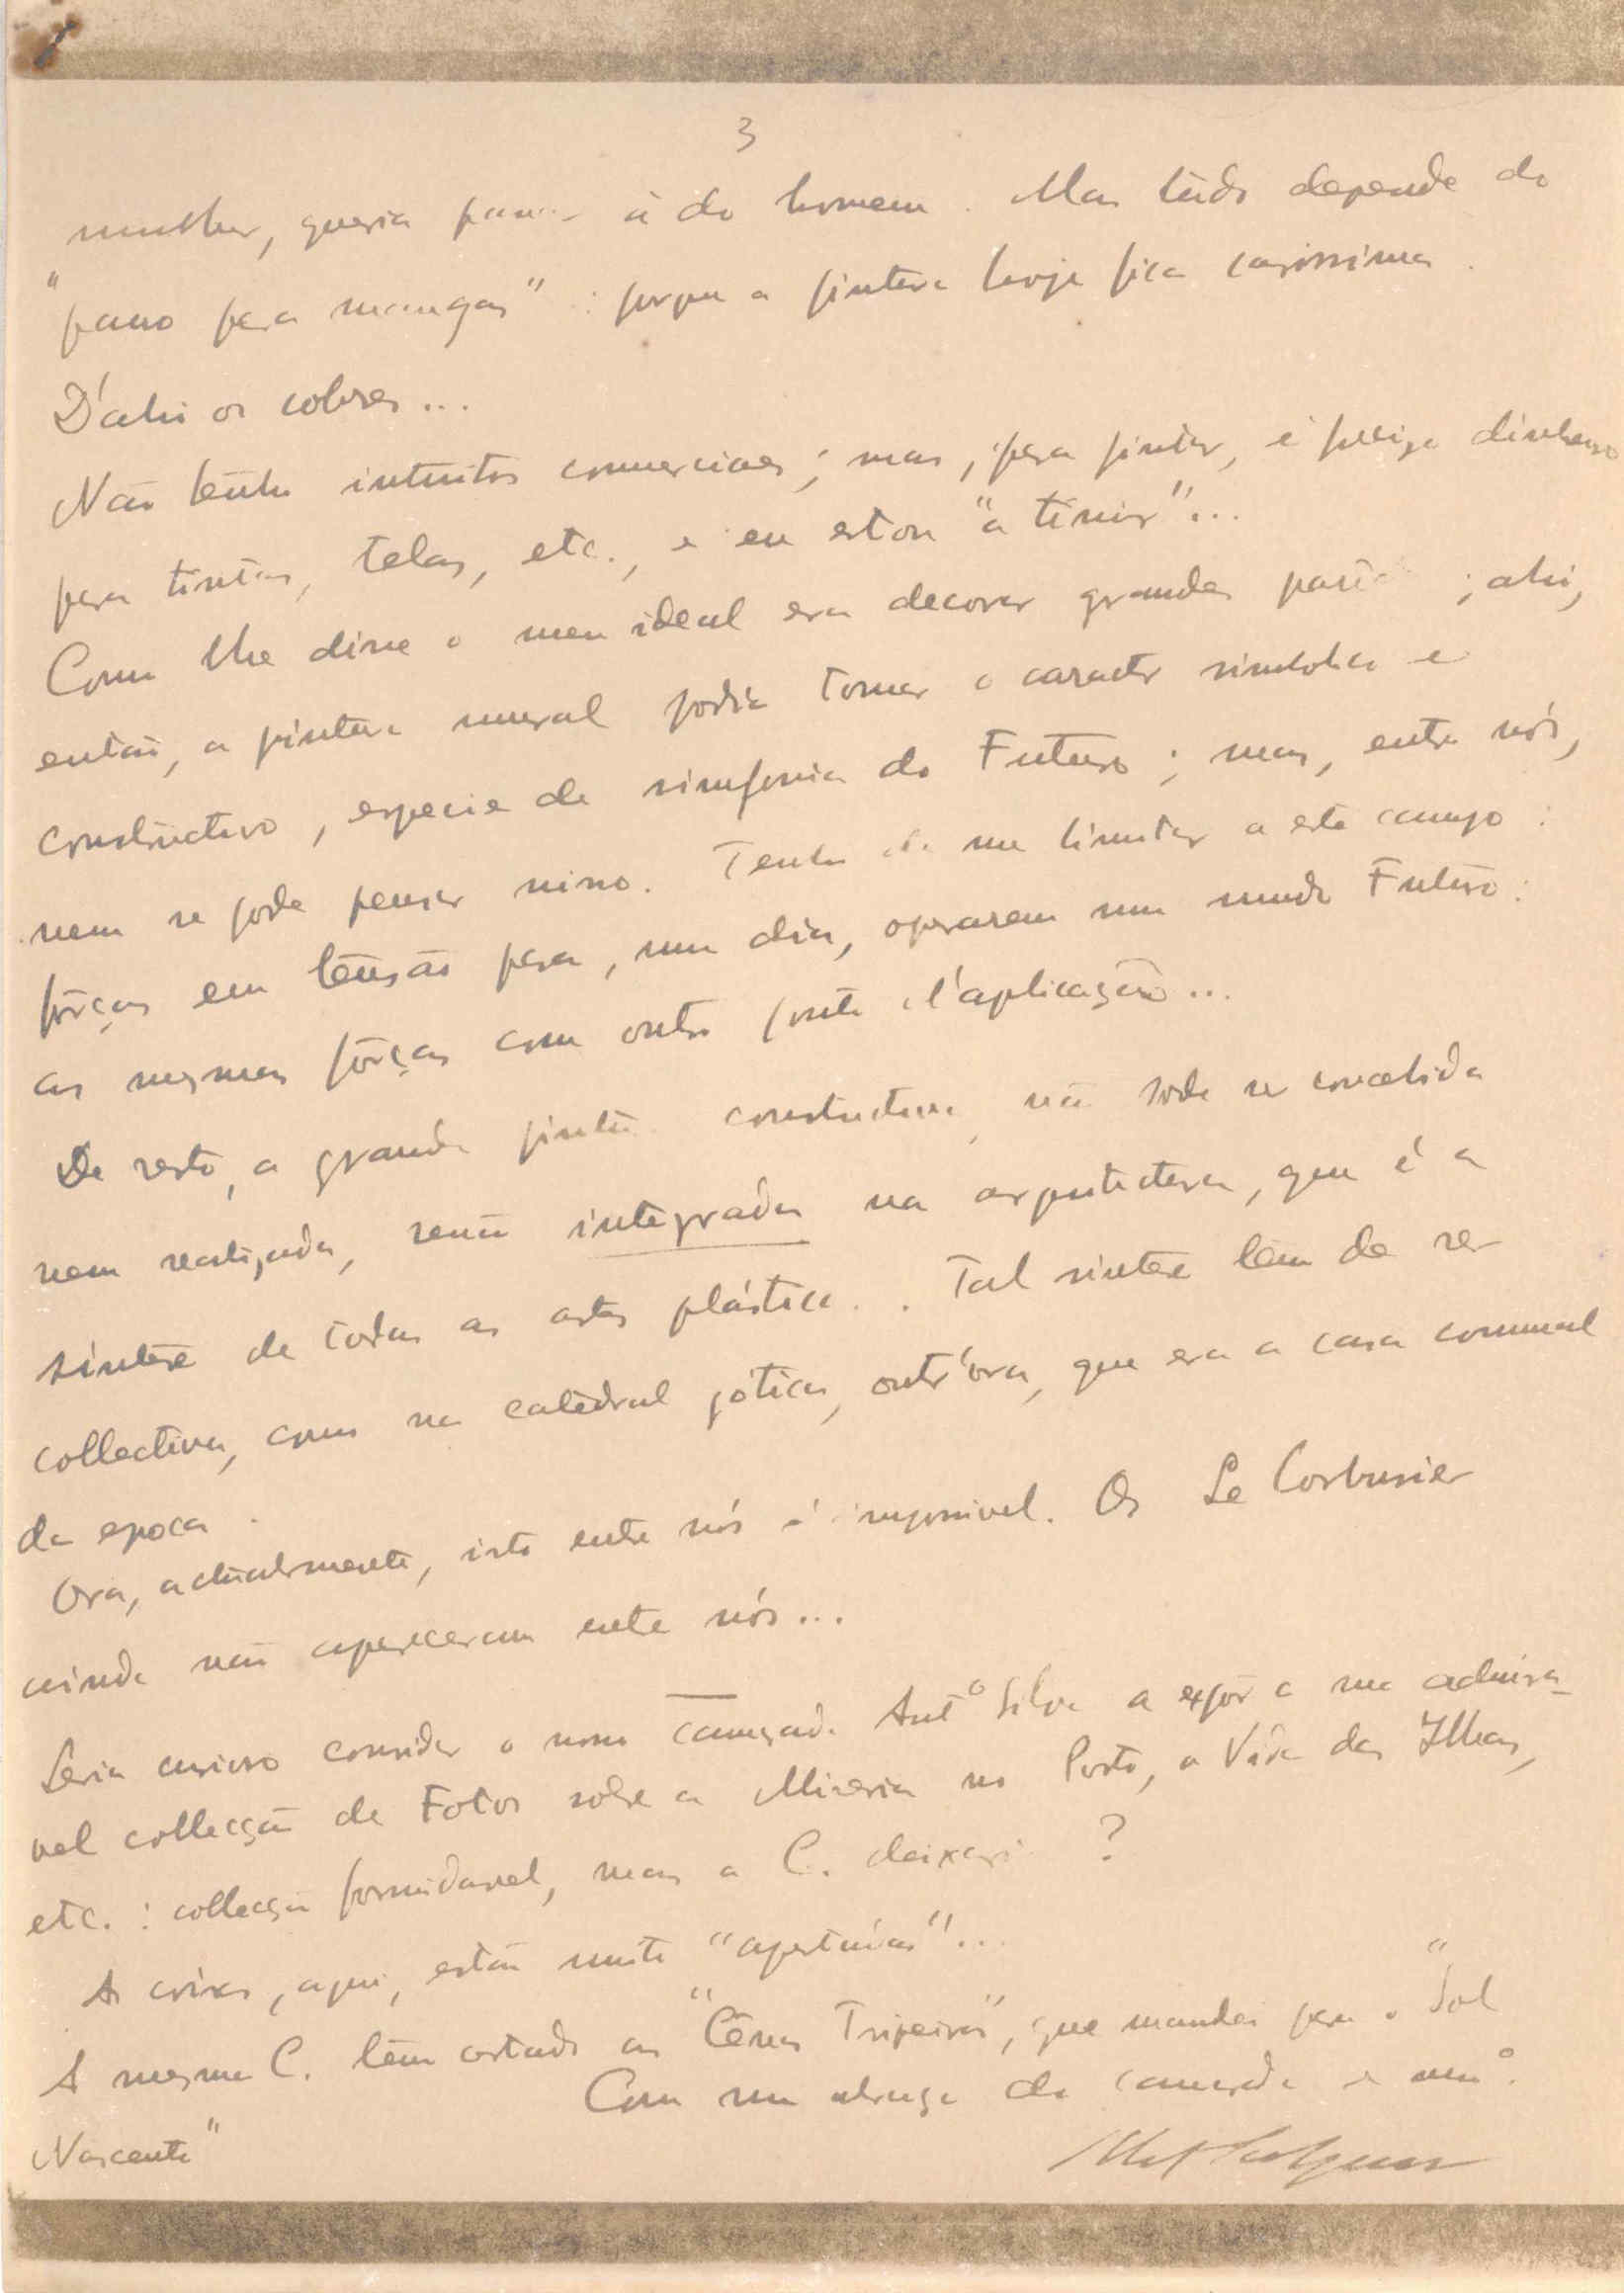 3
mulher, queria passar à do homem. Mas tudo depende do
"pano para mangas" : porque a pintura hoje fica carissima.
D'ahi os cobres...
Não tenho intuitos comerciaes; mas, para pintar, é preciso dinheiro
para tintas, telas, etc., e eu estou "a tinir"...
Como lhe disse o meu ideal era decorar grandes ; ahi,
então, a pintura mural podia tomar o caracter simbolico e
constructivo, especie de simfonia do Futuro; mas, entre nós,
nem se pode pensar nisso. Tenho de me limitar a este campo :
fôrças em tensão para, um dia, operarem num mundo Futuro :
as mesmas fôrças com outro ponto d'aplicação...
De resto, a grande pintura constructiva não pode ser concebida
nem realizada, senão integrada na arquitectura, que é a
sintese de todas as artes plásticas. Tal sintese tem de ser
collectiva, como na catedral gótica, outr'ora, que era a casa comunal
da epoca.
Ora, actualmente, isto entre nós é impossivel. Os Le Corbusier
ainda não apareceram entre nós...
Seria curioso convidar o nosso camarada Antº Silva a expôr a sua admira-
vel collecção de Fotos sobre a Miseria no Porto, a Vida das Ilhas,
etc. : collecção formidavel, mas a C. deixará ?
As coisas, aqui, estão muito "apertadas"...
A mesma C. tem cortado as "Cênas Tripeiras", que mandei para o "Sol
Nascente"
Com um abraço do camarada e